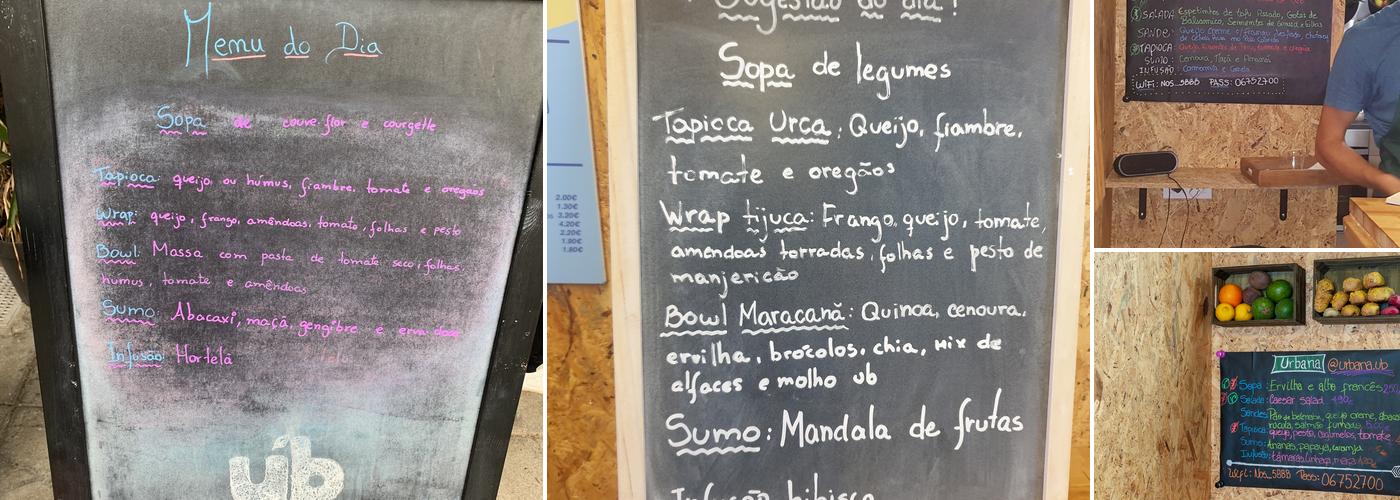 Menu do Dia
Sopa de couve-flor e courgette
Tapioca: queijo ou húmus, fiambre, tomate e oregãos
Wrap: queijo, frango, amêndoas, tomate, folhas e pesto
Bowl: Massa com pasta de tomate seco, folhas,
húmus, tomate e amêndoas
Sumo: Abacaxi, maçã, gengibre e erva doce
Infusão: Hortelã
úb
Sugestão do dia!
Sopa de legumes
Tapioca Urca: Queijo, fiambre,
tomate e oregãos
Wrap tijuca: Frango, queijo, tomate,
amendoas torradas, folhas e pesto de
manjericão
Bowl Maracanã: Quinoa, cenoura,
ervilha, brócolos, chia, mix de
alfaces e molho ub
Sumo: Mandala de frutas
Infusão hibisco
2.00€
1.30€
3.20€
4.20€
2.20€
1.90€
1.80€
SALADA: Espetinhos de tofu Assado, Gotas de
Balsamico, Sementes de Girassol e folhas
SANDE: Queijo creme c/
TAPIOCA:
SUMO: Cenoura, Maçã e
INFUSÃO: Camomila e Canela
WiFi: NOS_5BBB PASS: 06752700
Urbana @urbana.ub
Sopa: Ervilha e alho francês
Salada: Caesar salad
Sandes: Pão de beterraba, queijo creme,
rúcula, salmão fumado,
Tapioca: queijo, pesto, cogumelos, tomate
Sumo: Ananás, papaya, laranja
Infusão:
Wifi: Nos_5BBB Pass: 06752700